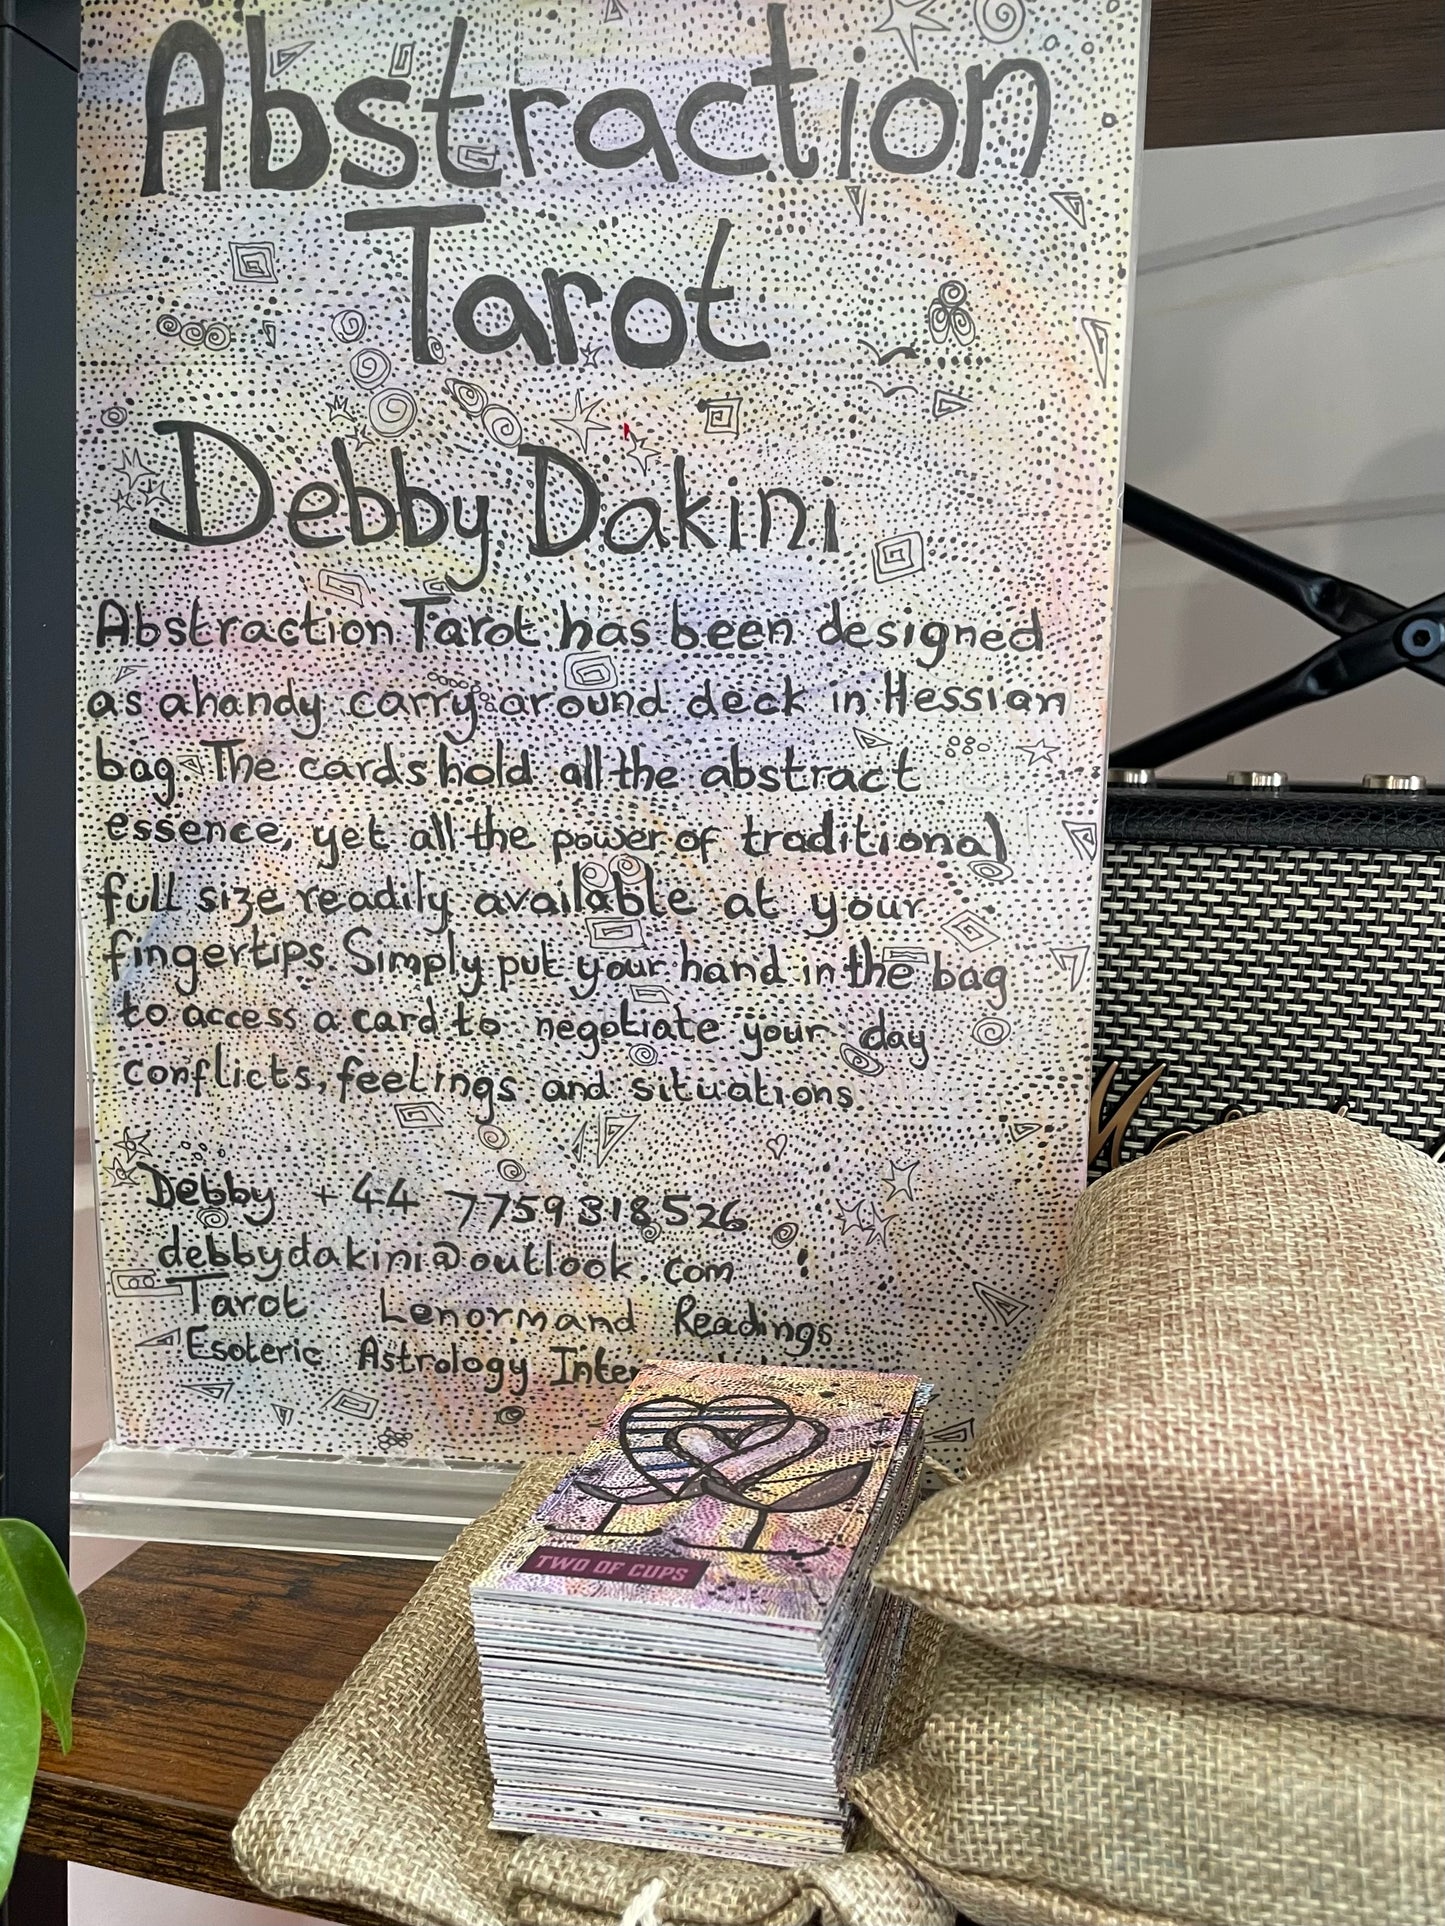 Abstraction
Tarot
Debby Dakini
Abstraction Tarot has been designed
as a handy carry around deck in Hessian
bag. The cards hold all the abstract
essence, yet all the power of traditional
full size readily available at your
fingertips. Simply put your hand in the bag
to access a card to negotiate your day
conflicts, feelings and situations.
Debby +44 7759318526
debbydakini@outlook.com
Tarot Lenormand Readings
Esoteric Astrology
TWO OF CUPS